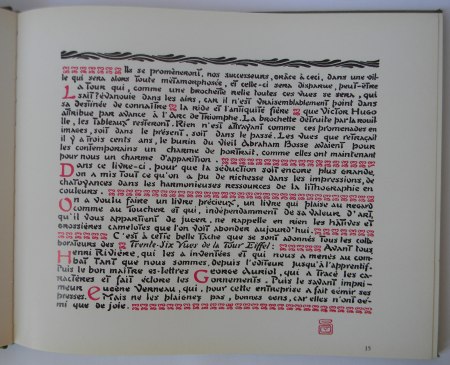 Ils se promèneront, nos successeurs, grâce à ceci, dans une vil-
le qui sera alors toute métamorphosée, et celle-ci sera disparue, peut-être
La Tour qui, comme une brochette relie toutes ces vues se sera, qui
sait? évanouie dans les airs, car il n'est vraisemblablement point dans
sa destinée de connaître la ride et l'antiquité fière que Victor Hugo
attribue par avance à l'Arc de Triomphe. La brochette détruite par la rouil-
le, les tableaux resteront. Rien n'est attrayant comme ces promenades en
images, soit dans le présent, soit dans le passé. Les vues que retraçait
il y a trois cents ans, le burin du vieil Abraham Bosse avaient pour
les contemporains un charme de portrait, comme elles ont maintenant
pour nous un charme d'apparition.
Dans ce livre-ci, pour que la séduction soit encore plus grande,
on a mis tout ce qu'on a pu de richesse dans les impressions, de
chatoyances dans les harmonieuses ressources de la lithographie en
couleurs.
On a voulu faire un livre précieux, un livre qui plaise au regard
comme au toucher et qui, indépendamment de sa valeur d'art,
qu'il vous appartient de juger, ne rappelle en rien les hâtives et
grossières camelotes que l'on voit abonder aujourd'hui.
C'est à cette belle tâche que se sont adonnés tous les colla-
borateurs des Trente-Six Vues de la Tour Eiffel: Avant tous
Henri Rivière, qui les a inventées et qui nous a menés au com-
bat tant que nous sommes, depuis l'éditeur jusqu'à l'apprentif.
Puis le bon maître ès-lettres George Auriol, qui a tracé les ca-
ractères et fait éclore les Ornements. Puis le savant impri-
meur Eugène Verneau, qui, pour cette entreprise a fait gémir ses
presses. Mais ne les plaignez pas, bonnes gens, car elles n'ont gé-
mi que de joie.
15